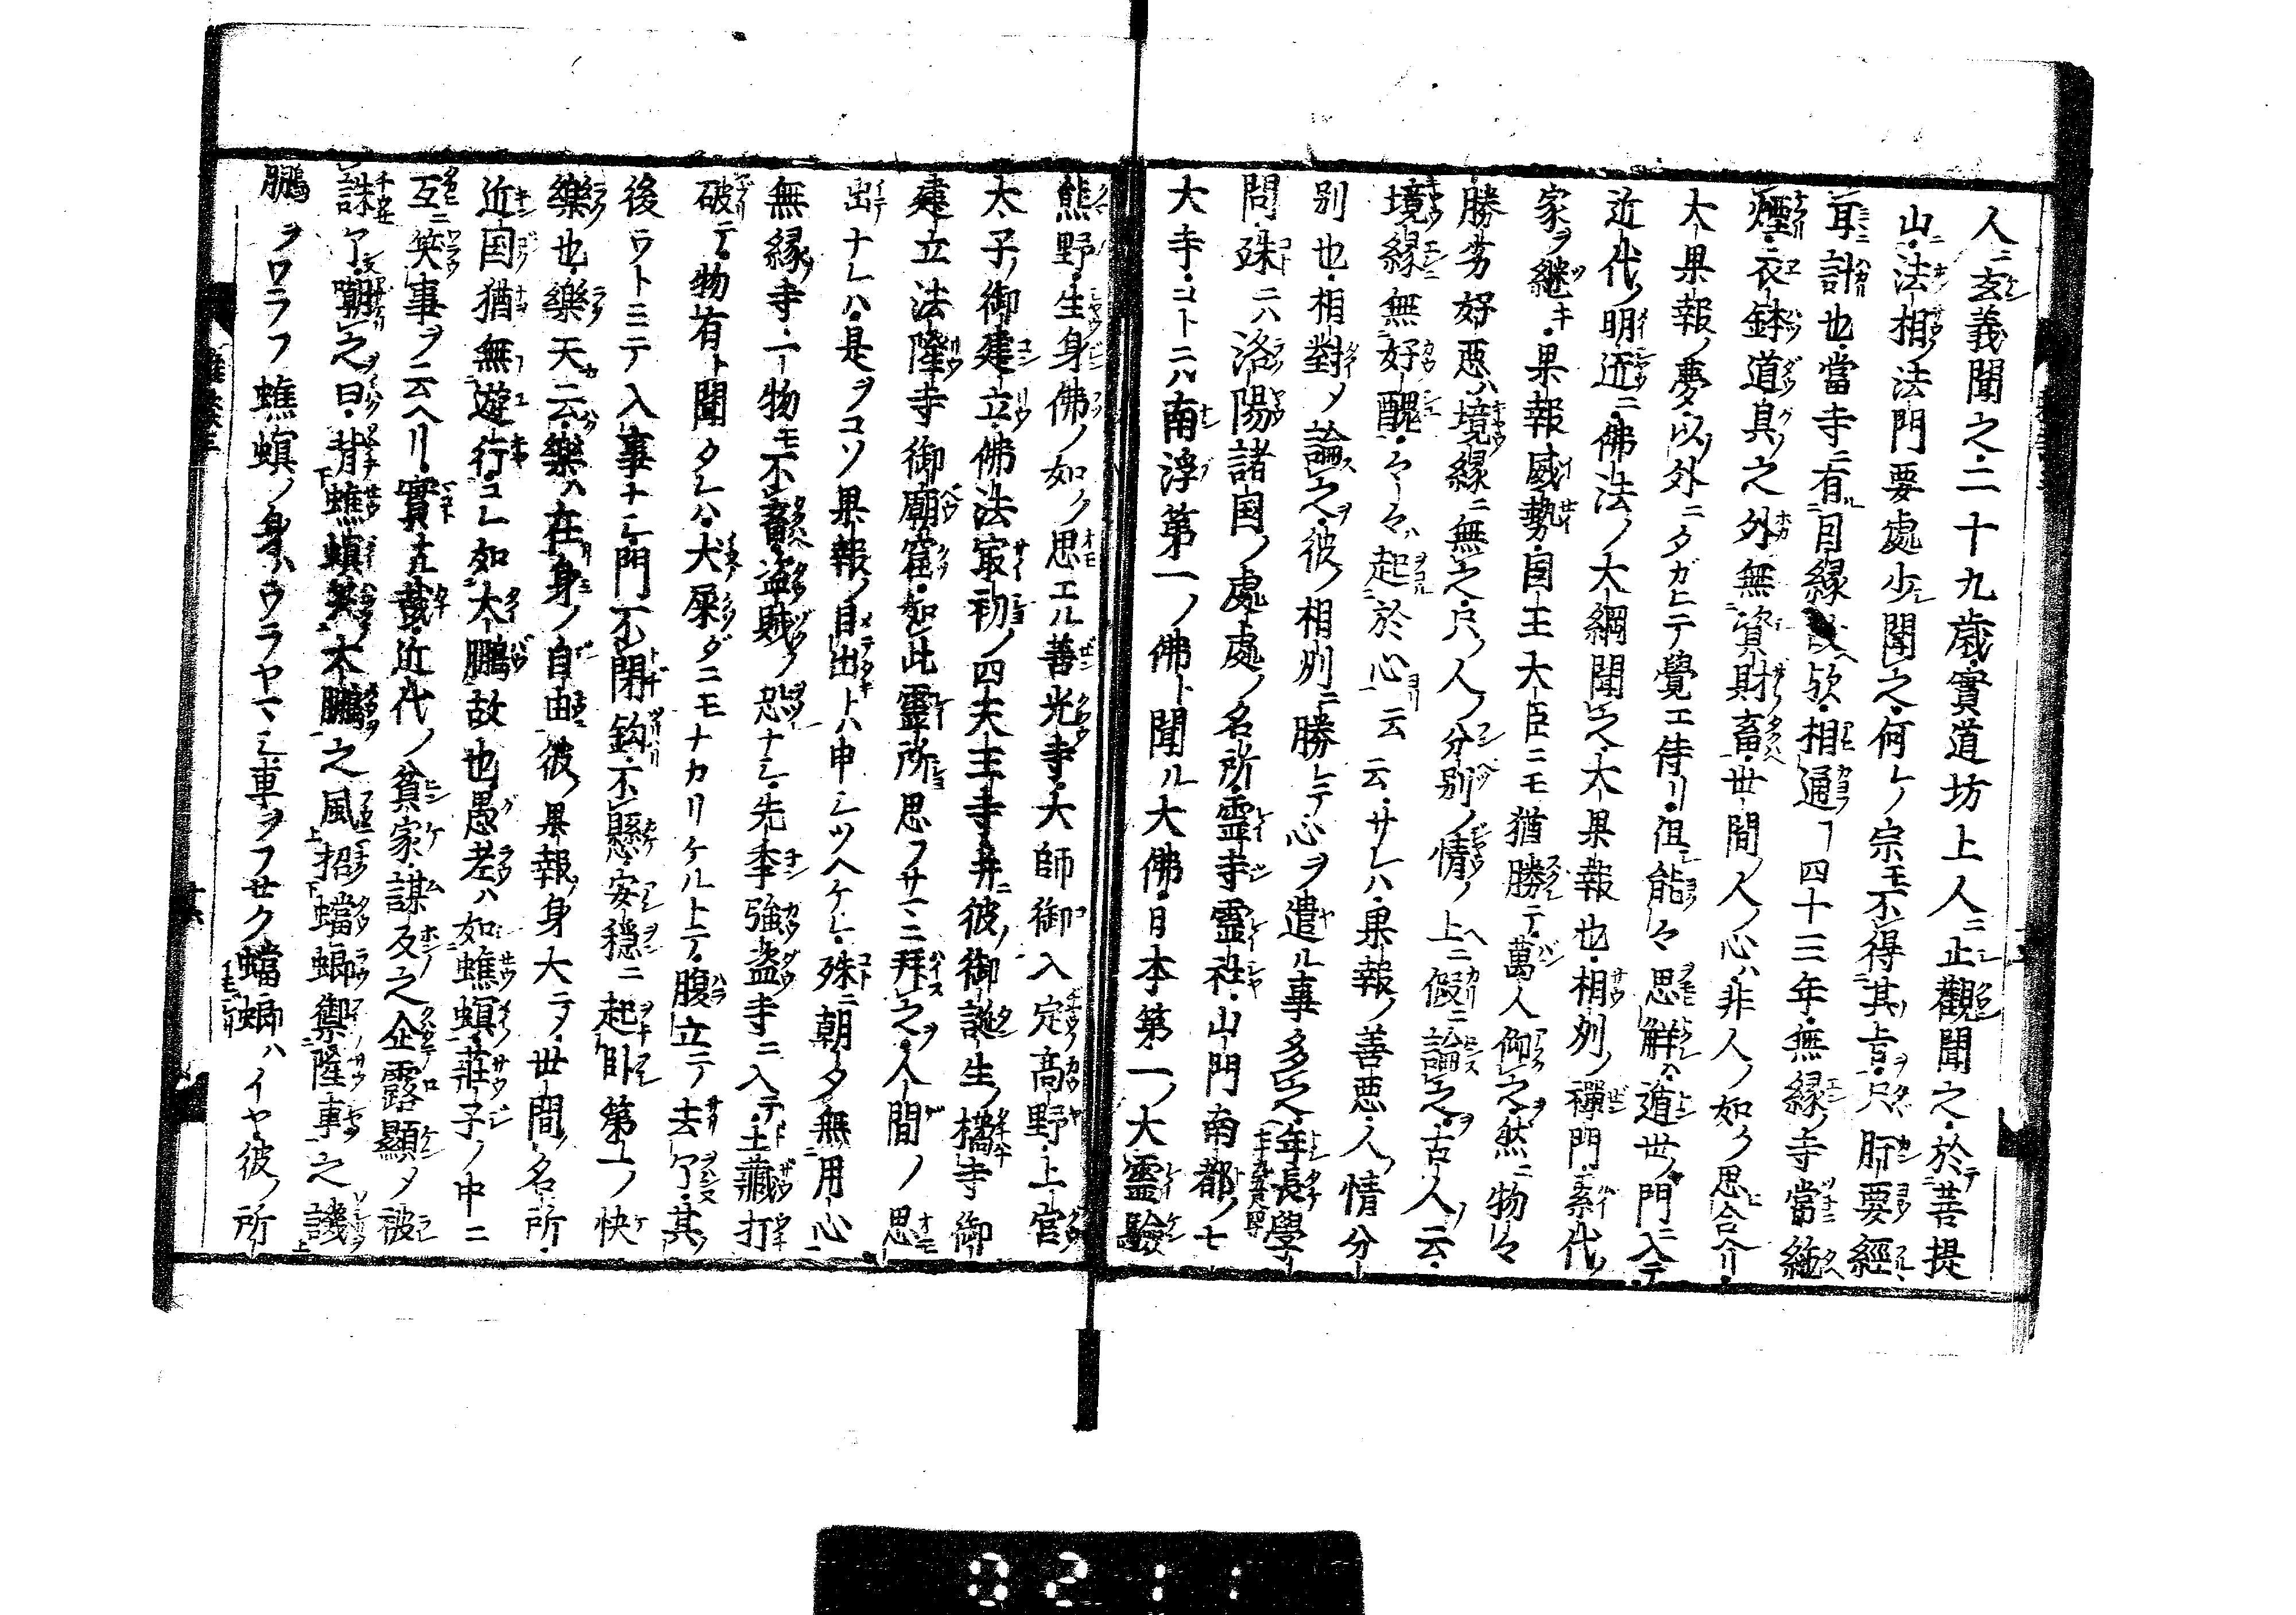 人ニ玄義聞之二十九歳實道坊上人ニ止觀聞之於菩提
山ニ法相ノ法門要處少聞之何レノ宗モ不得其旨只肝要經
耳ニ計也當寺ニ有目縁 欤相通フ四十三年無縁ノ寺當絶
煙ニ衣鉢道具之外無資財畜世間ノ人ノ心ハ非人ノ如ク思合介リ
大果報ノ夢以外ニタガヒテ覺エ侍リ但能々思解ハ遁世ノ門ニ入テ
近代ノ明近ニ佛法ノ大綱聞之大果報也相列ノ禪門累代ノ
家ヲ継キ果報威勢自主大臣ニモ猶勝テ萬人仰之然ニ物々
勝劣好惡ハ境縁ニ無之只人ノ分別ノ情ノ上ニ假ニ論之古人云
境縁無好醜々々起於心云云サレハ果報ノ善悪人ノ情分
別也相對メ論之彼ノ相列ニ勝レテ心ヲ遣ル事多之年長學
問殊ニハ洛陽諸国ノ處處ノ名所靈寺靈社山門南都ノ七
大寺コトニハ南浮第一ノ佛ト聞ル大佛日本第一ノ大靈驗
熊野生身佛ノ如ク思エル善光寺大師御入定高野上宮
太子ノ御建立佛法冣初ノ四天王寺并彼ノ御誕生ノ橘寺御
建立法隆寺御廟窟如此靈所思フサマニ拜之人間ノ思
出ナレハ是ヲコソ果報ノ自出トハ申シツヘケレ殊ニ朝夕無用心
無縁ノ寺一物モ不蓄盗賊ノ恐ナシ先季強盗寺ニ入テ土藏打
破テ物有ト聞タレハ犬屎ダニモナカリケルトテ腹立テ去了其
後ウトミテ入事ナシ門不閉鈎不懸安穏ニ起卧第一ノ快
樂也樂天云樂ハ在身ノ自由彼ノ果報ノ身大テ世間ノ名所
近国猶無遊行コレ如大鵬故也愚老ハ如蟭螟莊子ノ中ニ
互ニ笑事ヲ云ヘリ實ナル哉近代ノ貧家謀反之企露顯メ被
誅了嘲之曰背蟭螟笑大鵬之風招蟷螂禦隆車之譏
鵬ヲワラフ蟭螟ノ身ハウラヤマシ車ヲフセク蟷螂ハイヤ彼ノ所